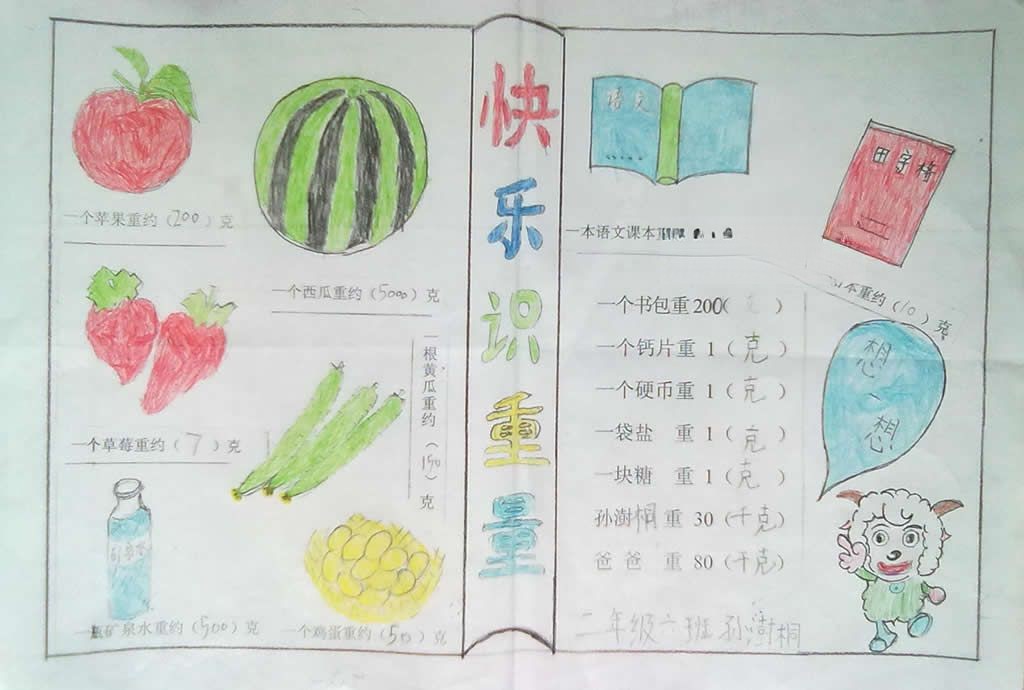 快乐识重量
一个苹果重约（200）克
一个西瓜重约（5000）克
一个草莓重约（7）克
一根黄瓜重约（150）克
矿泉水
一瓶矿泉水重约（500）克
一个鸡蛋重约（50）克
语文
一本语文课本
田字格
本重约（10）克
一个书包重 200（ ）
一个钙片重 1（克）
一个硬币重 1（克）
一袋盐 重 1（克）
一块糖 重 1（克）
孙澍桐 重 30（千克）
爸爸 重 80（千克）
想一想
二年级六班 孙澍桐